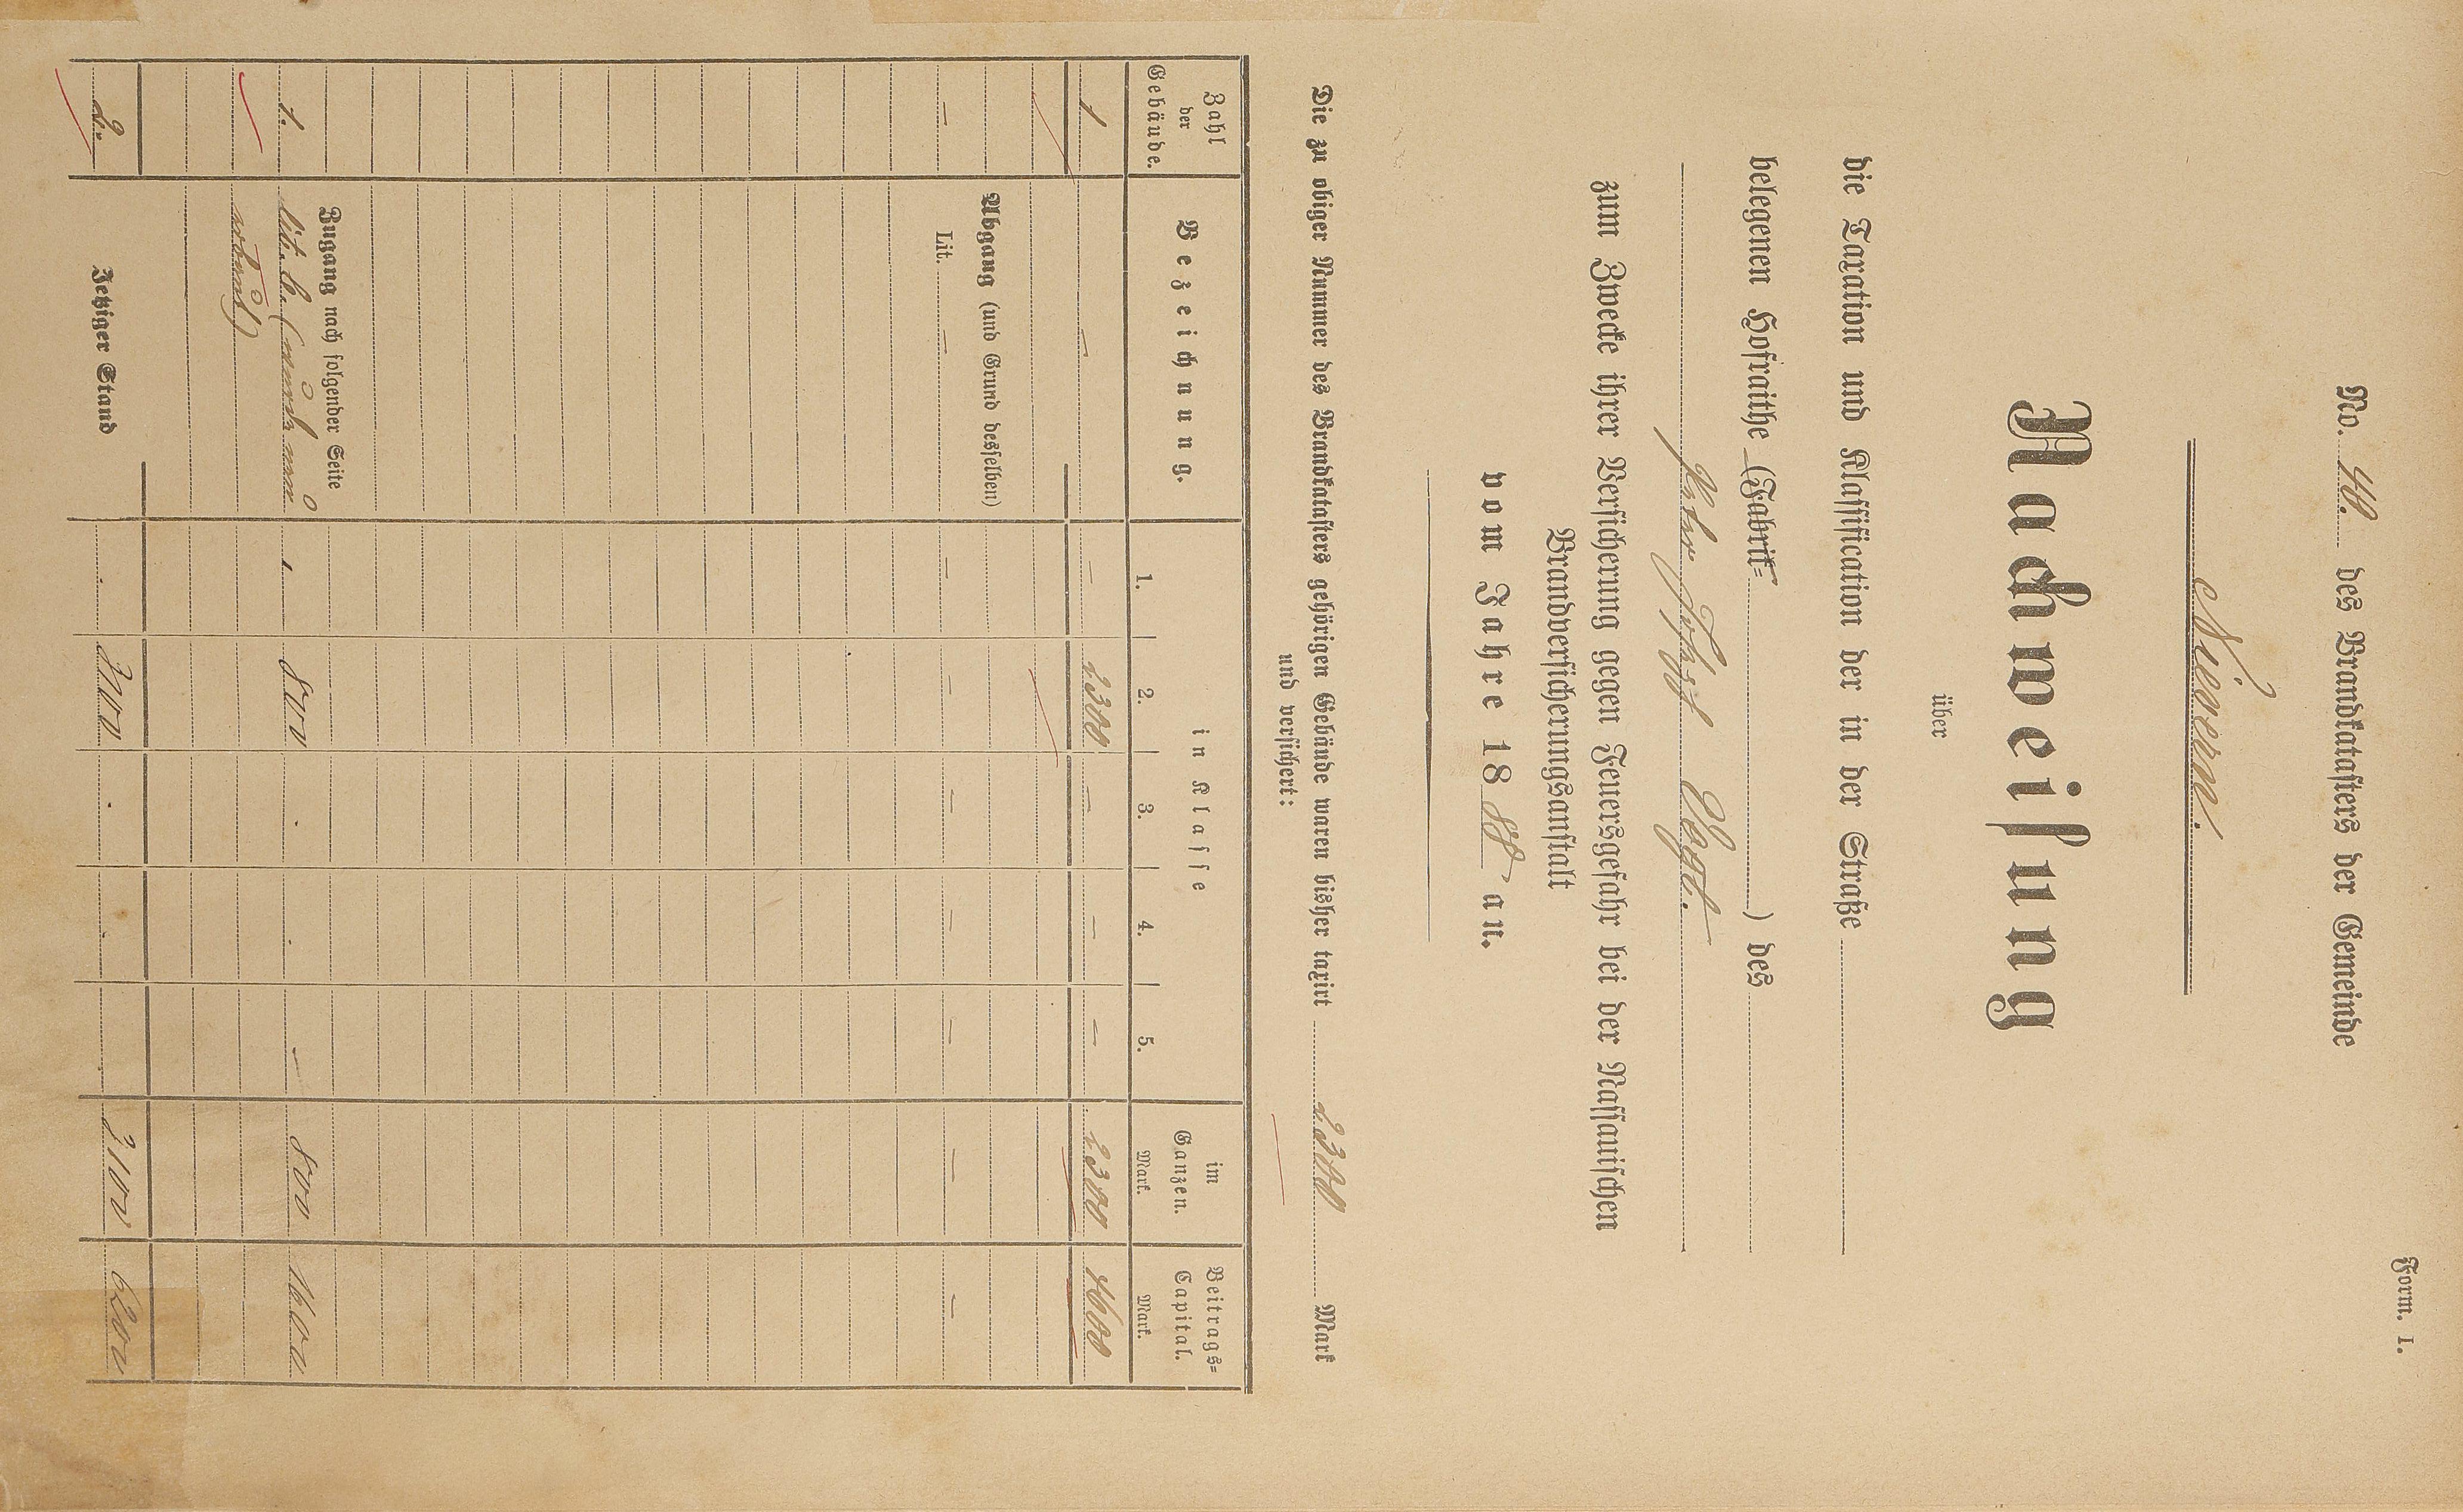 Form. I.
No. 48. des Brandkatasters der Gemeinde
Nievern.
Nachweisung
über
die Taxation und Klassification der in der Straße
belegenen Hofraithe (Fabrik= ) des
Peter Josef Vogt.
zum Zwecke ihrer Versicherung gegen Feuersgefahr bei der Nassauischen
Brandversicherungsanstalt
vom Jahre 1888 an.
Die zu obiger Nummer des Brandkatasters gehörigen Gebäude waren bisher taxirt 2300 Mark
und versichert:
Zahl der Gebäude. Bezeichnung. in Klasse im Ganzen. Beitrags=Capital.
1. 2. 3. 4. 5. Mark. Mark.
1 — — 2300 — — — 2300 4600
Abgang (und Grund desselben)
— Lit. — — — — — — — —
Zugang nach folgender Seite
1. Lit. b. ( 800 . . 800 1600
erbaut)
2. Jetziger Stand . 3100 . . 3100 6200